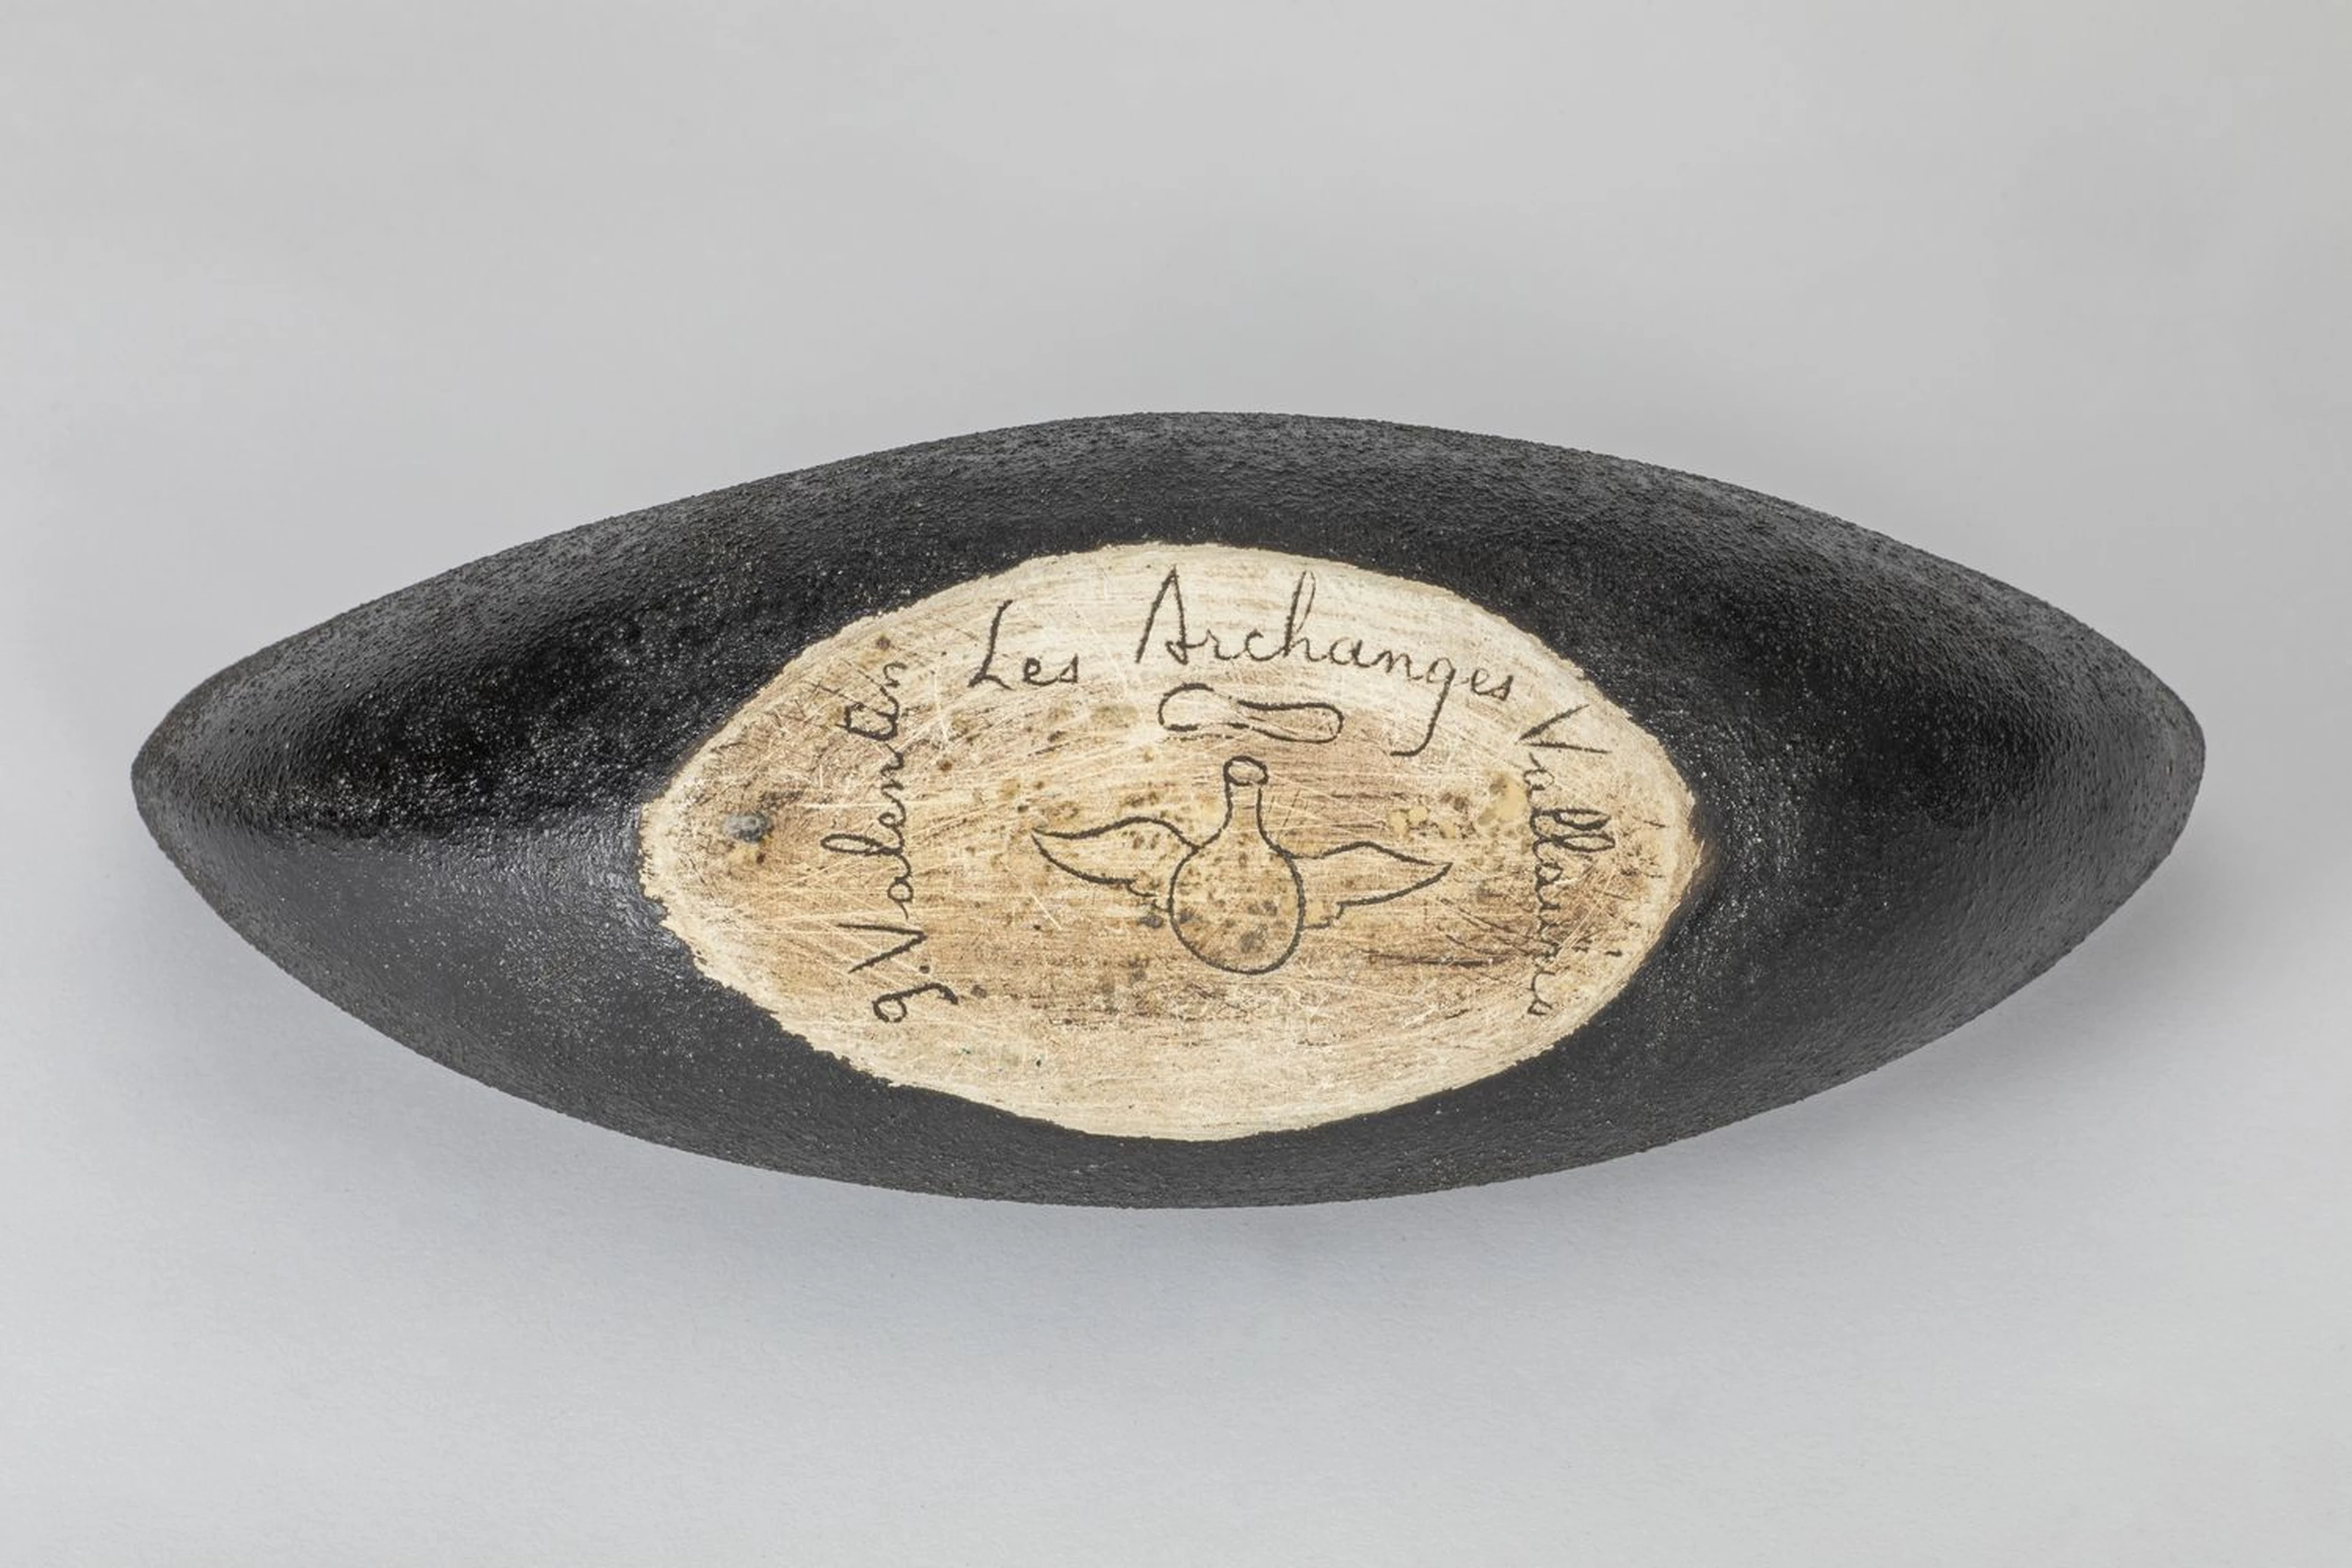 g. Valentin
Les Archanges
Vallauris